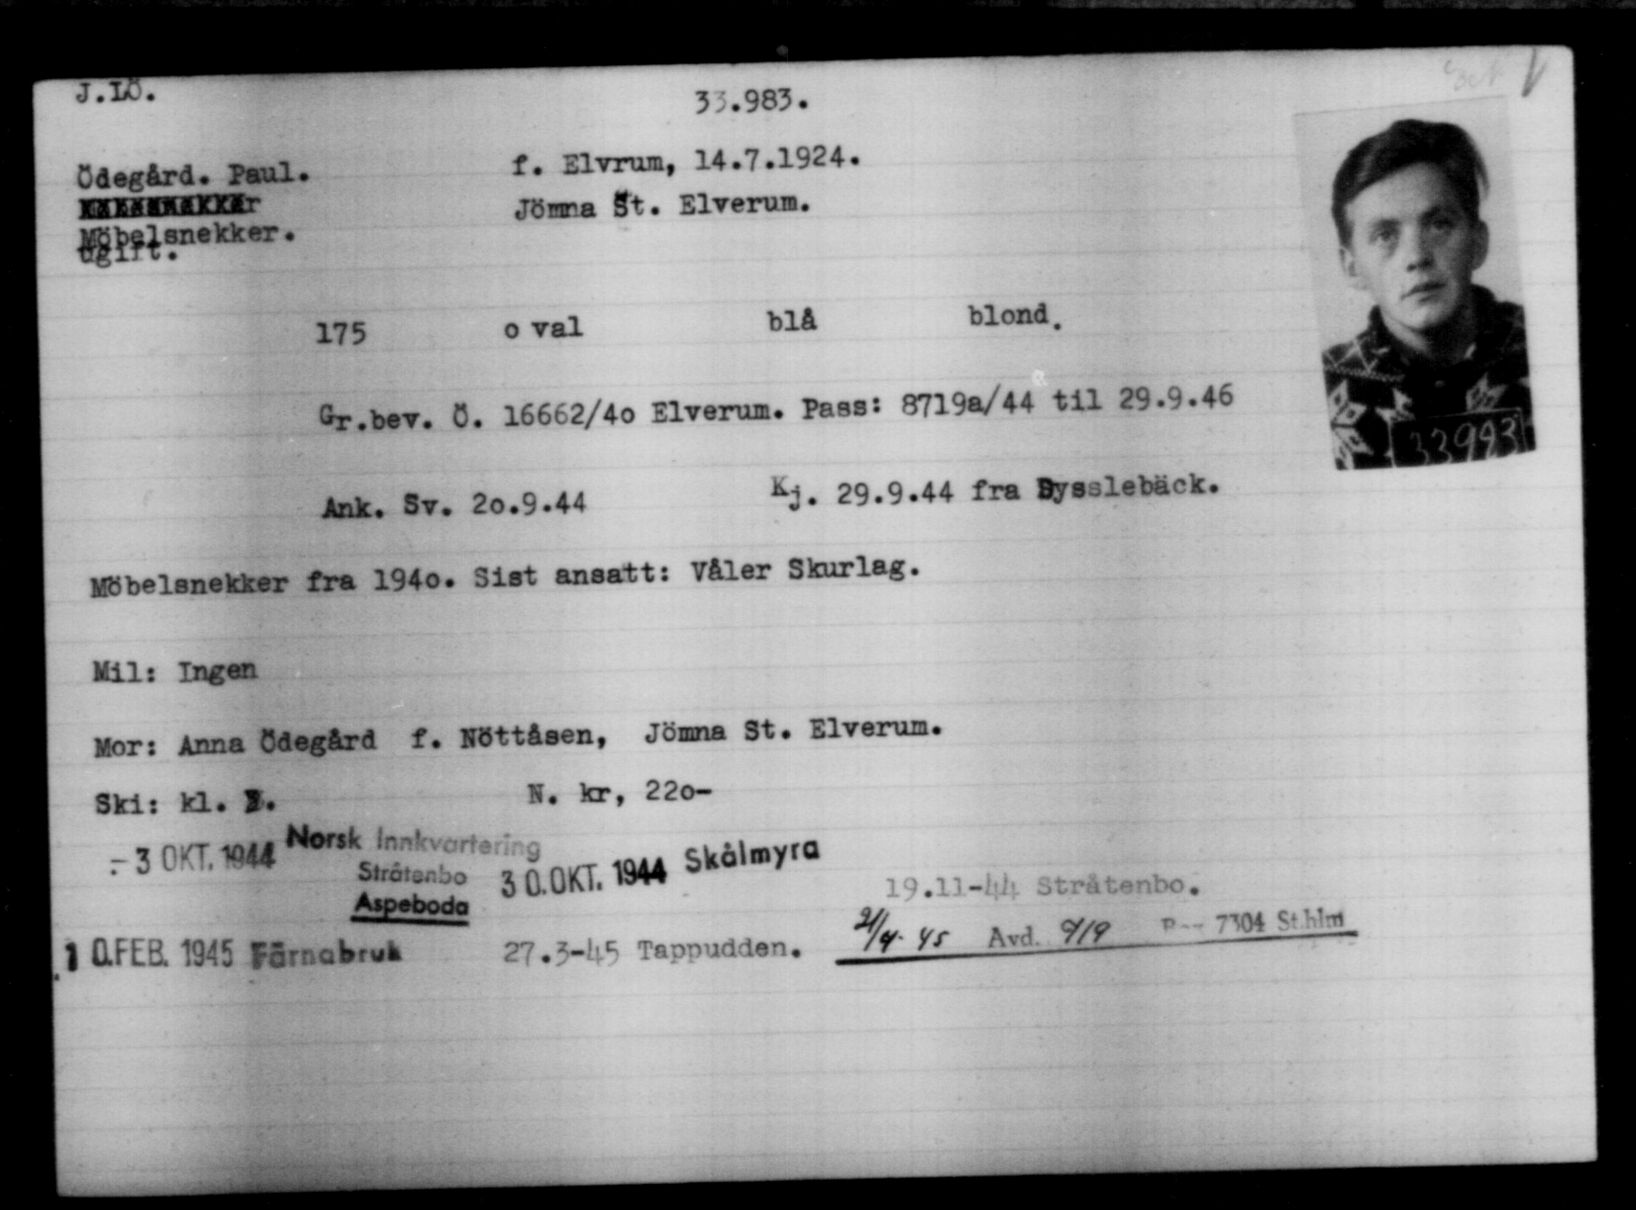 J.LÖ.
33.983.
Ödegård. Paul.
f. Elvrum, 14.7.1924.
Jömna St. Elverum.
Möbelsnekker.
Ugift.
175 o val blå blond.
Gr.bev. Ö. 16662/4o Elverum. Pass: 8719a/44 til 29.9.46
33993
Ank. Sv. 2o.9.44
Kj. 29.9.44 fra Sysslebäck.
Möbelsnekker fra 194o. Sist ansatt: Våler Skurlag.
Mil: Ingen
Mor: Anna Ödegård f. Nöttåsen, Jömna St. Elverum.
Ski: kl.
N. kr, 22o-
-3 OKT. 1944 Norsk Innkvartering
Stråtenbo
Aspeboda
30.OKT. 1944 Skålmyra
19.11-44 Stråtenbo.
10.FEB. 1945 Färnabruk
27.3-45 Tappudden.
21/4-45 Avd. 9/19 7304 St.hlm